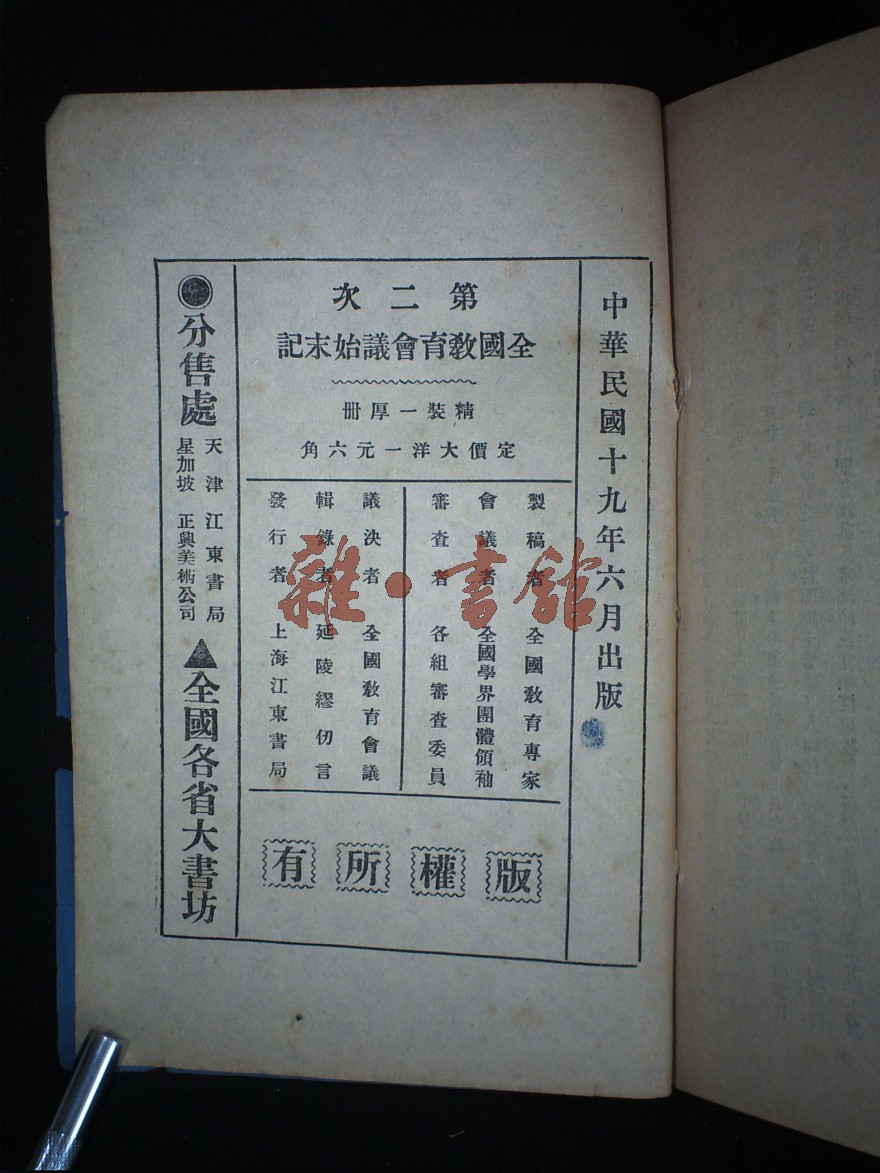 中華民國十九年六月出版
第二次
全國教育會議始末記
精裝一厚册
定價大洋一元六角
製稿者 全國教育專家
會議者 全國學界團體領袖
審查者 各組審查委員
議決者 全國教育會議
輯錄者 延陵繆仞言
發行者 上海江東書局
版權所有
●分售處
天津江東書局
星加坡 正興美術公司
▲全國各省大書坊
雜·書館